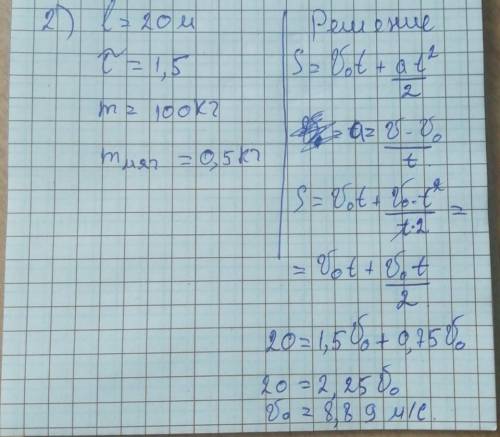 2) l = 20м
τ = 1,5
m = 100кг
mмяг = 0,5кг
Решение
S = v₀t + at²/2
= a = v - v₀/t
S = v₀t + v₀·t²/t·2 =
= v₀t + v₀t/2
20 = 1,5v₀ + 0,75v₀
20 = 2,25v₀
v₀ = 8,89 м/с.